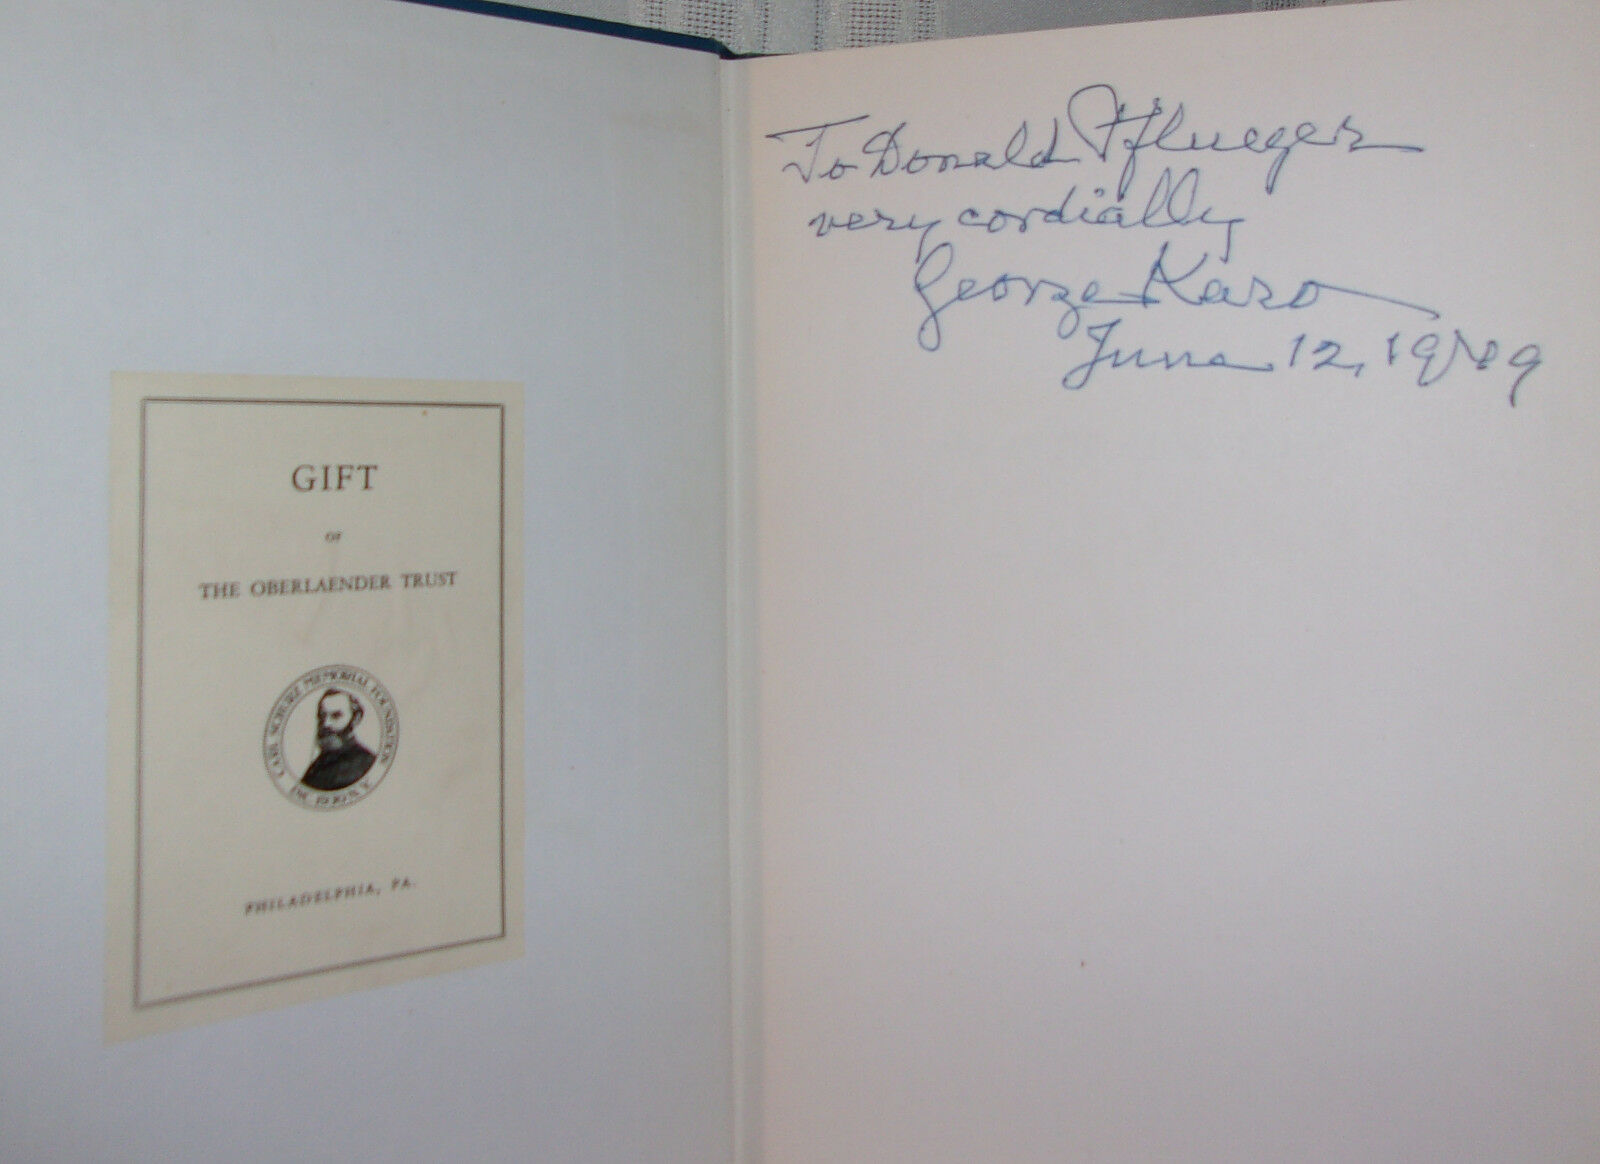 GIFT
OF
THE OBERLAENDER TRUST
CARL SCHURZ MEMORIAL FOUNDATION
INC. 1930
PHILADELPHIA, PA.
To Donald Pflueger
very cordially
George Karo
June 12, 1949